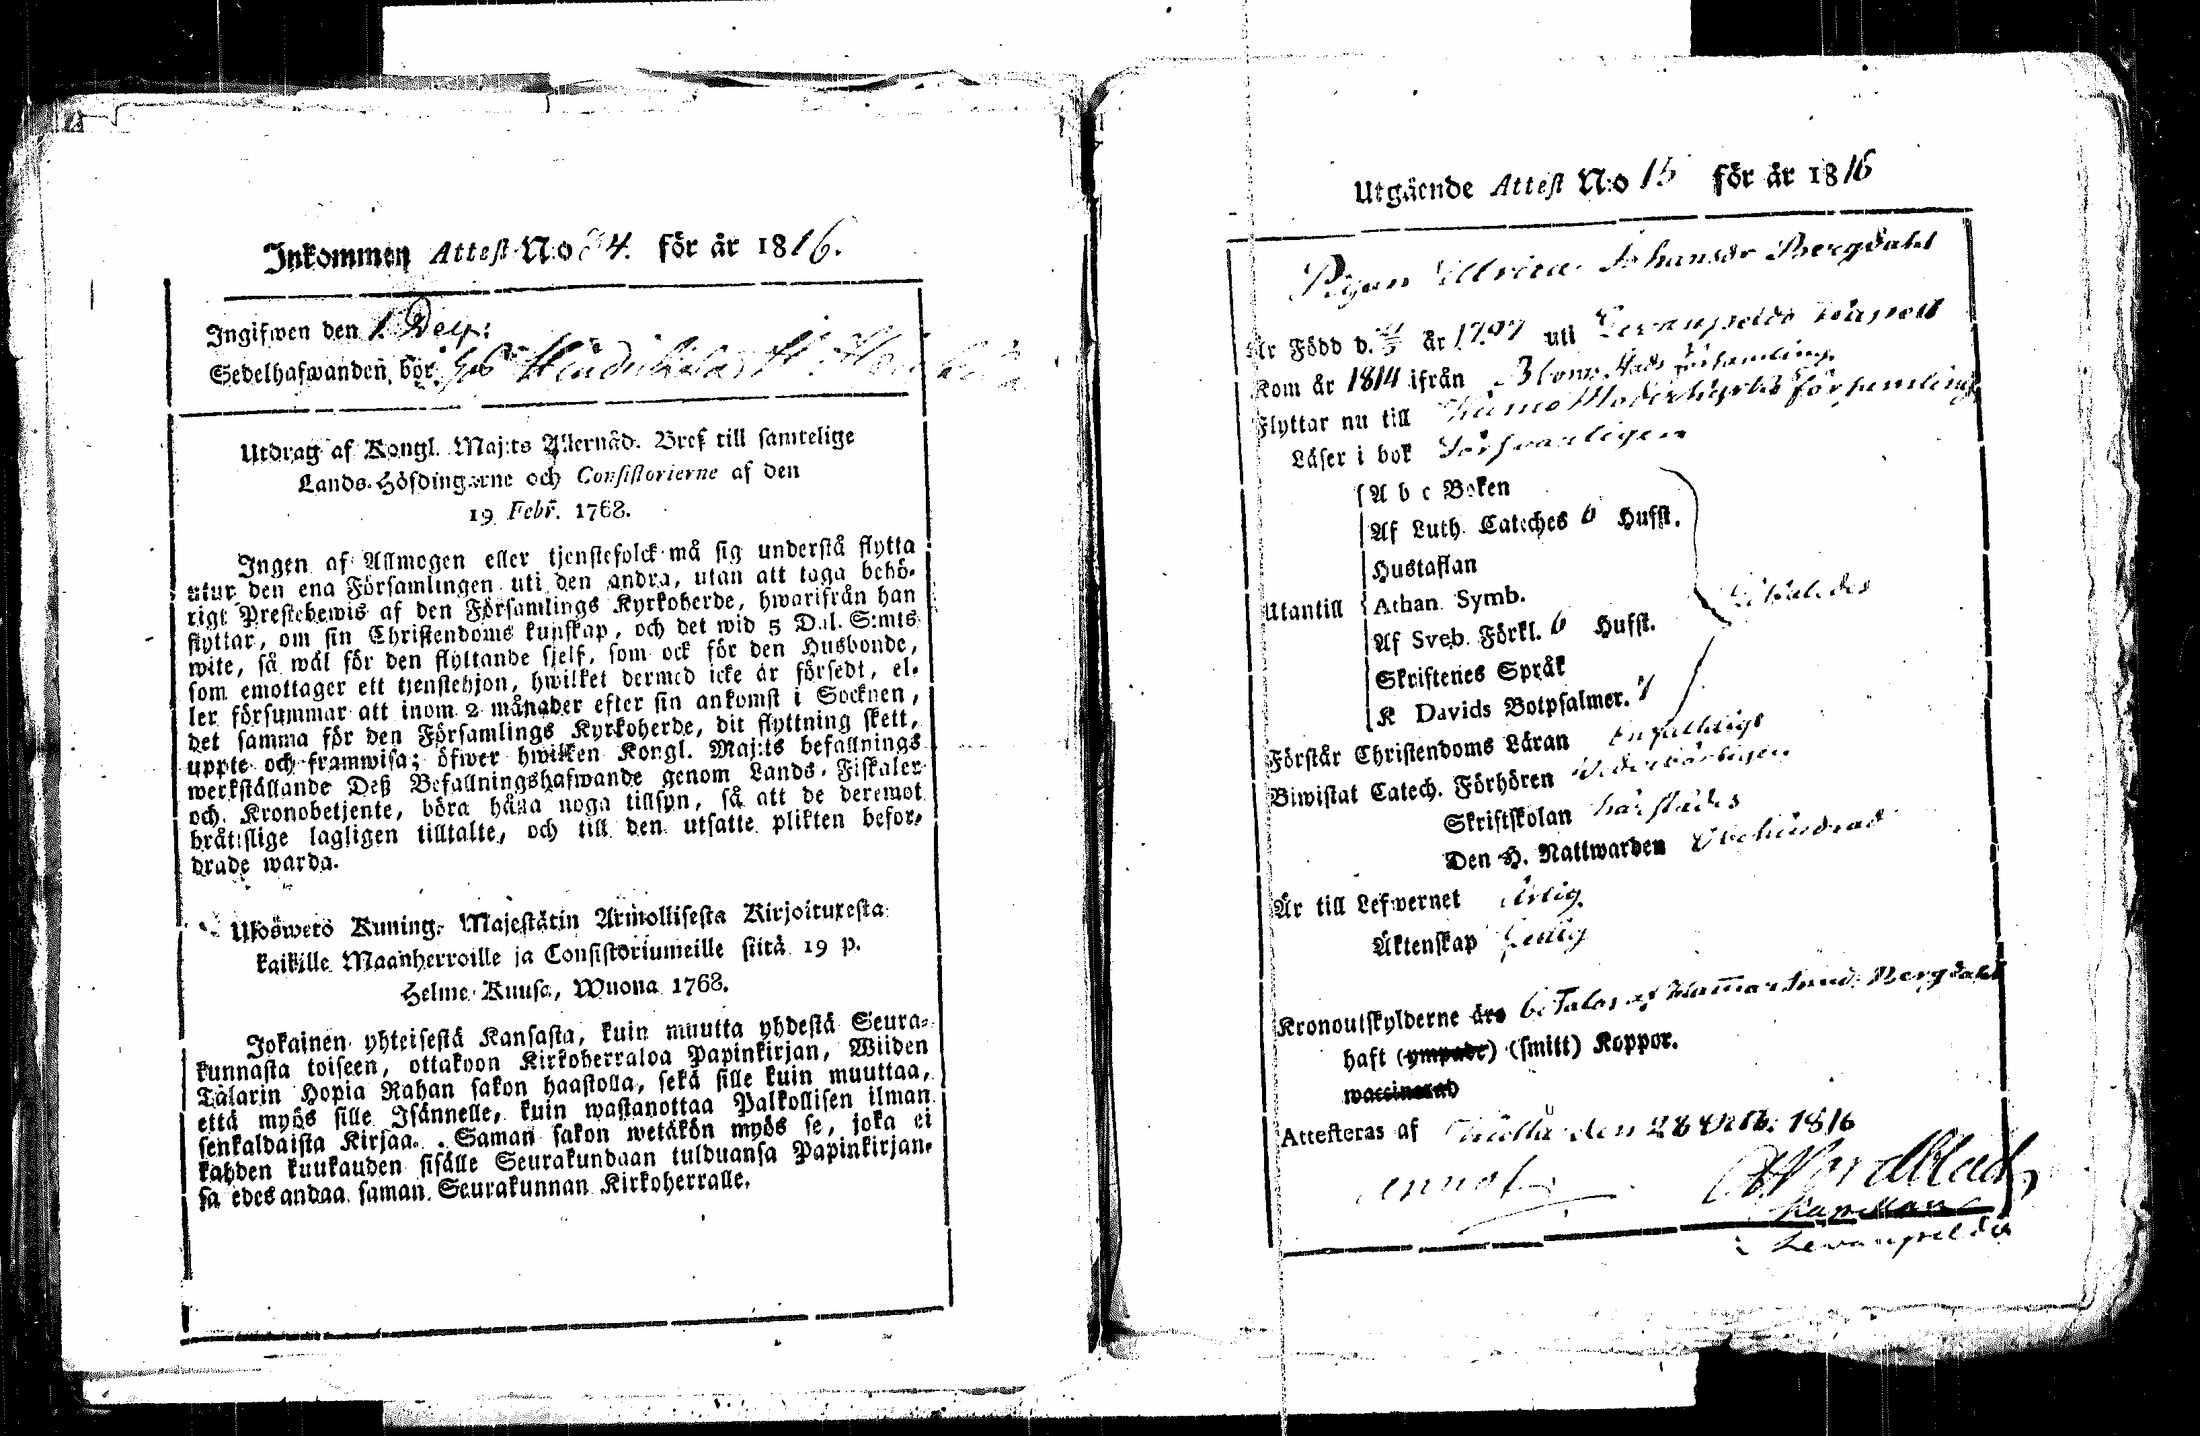 Inkommen Attest N:o 34. för år 1816.
Ingifwen den 1. Dec:
Sedelhafwanden bör hos
Utdrag af Kongl. Maj:ts Allernåd. Bref till samtelige
Lands-Höfdingarne och Consistorierne af den
19 Febr. 1768.
Ingen af Allmogen eller tjenstefolck må sig understå flytta
utur den ena Församlingen uti den andra, utan att taga behö-
rigt Prestebewis af den Församlings Kyrkoherde, hwarifrån han
flyttar, om sin Christendoms kunskap, och det wid 5 Dal. S:mts
wite, så wäl för den flyttande sjelf, som ock för den Husbonde,
som emottager ett tjenstehjon, hwilket dermed icke är försedt, el-
ler försummar att inom 2 månader efter sin ankomst i Socknen,
det samma för den Församlings Kyrkoherde, dit flyttning skett,
uppte och framwisa; öfwer hwilken Kongl. Maj:ts befallnings
werkställande Deß Befallningshafwande genom Lands-Fiskaler
och Kronobetjente, böra hålla noga tillsyn, så att de deremot
bråtslige lagligen tilltalte, och till den utsatte plikten befor-
drade warda.
Ulosweto Kuning. Majestätin Armollisesta Kirjoituxesta
kaikille Maanherroille ja Consistoriumeille siitä 19 p.
Helme-Kuusa, Wuona 1768.
Jokainen yhteisestä Kansasta, kuin muutta yhdestä Seura-
kunnasta toiseen, ottakoon Kirkoherraloa Papinkirjan, Wiiden
Talarin Hopia Rahan sakon haastolla, sekä sille kuin muuttaa,
että myös sille Isännelle, kuin wastanottaa Palkollisen ilman
senkaldaista Kirjaa. Saman sakon wetäkön myös se, joka ei
kahden kuukauden sisälle Seurakundaan tulduansa Papinkirjan-
sa edesandaa saman Seurakunnan Kirkoherralle.
Utgående Attest N:o 15 för år 1816
Pigan Ulrica Johansdr Bergdahl
Är Född d. år 1797 uti Lewanpelds Kapell
Kom år 1814 ifrån församling
Flyttar nu till Kumo Moderkyrko församling
Läser i bok Försvarligen
A b c Boken
Af Luth. Cateches 6 Hufst.
Hustaflan
Utantill Athan. Symb.
Af Sveb. Förkl. 6 Hufst.
Skriftenes Språk
K Davids Botpsalmer. 7
Förstår Christendoms Läran enfaldigt
Biwistat Catech. Förhören
Skriftskolan härstädes
Den H. Nattwarden Obehindrad
Är till Lefwernet ärlig
Äktenskap Ledig
Kronoutskylderne äro betalas af Bergdahl
haft (ympade) (smitt) Koppor.
waccinerad
Attesteras af den 28 Octb. 1816
Nordblad
Kapellan
i Lewanpelds